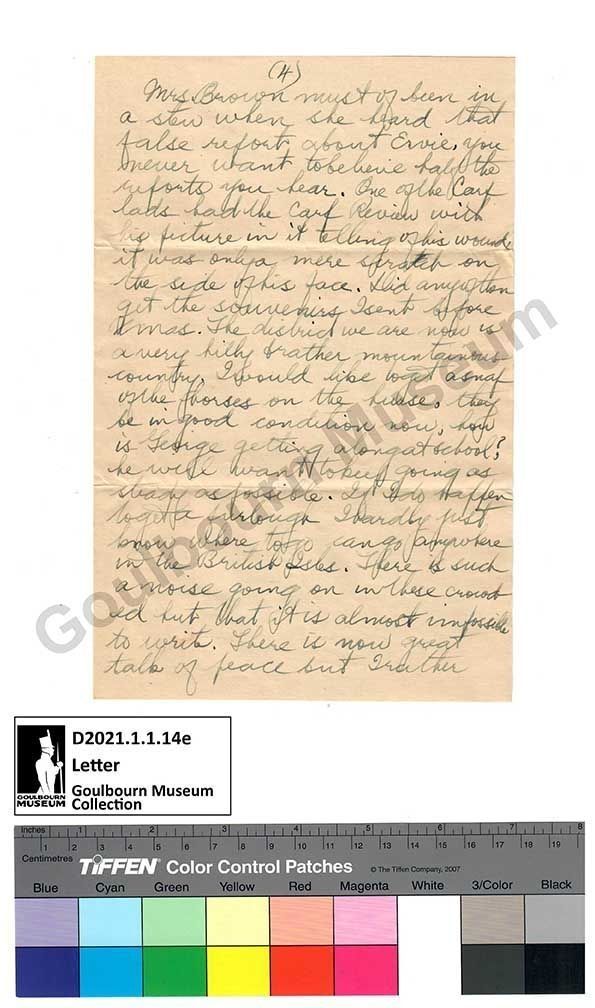 (4)
Mrs. Brown must of been in
a stew when she heard that
false report about Ervie, you
never want to believe half the
reports you hear. One of the Carp
lads had the Carp Review with
his picture in it telling of his wounds
it was only a mere scratch on
the side of his face. Did any of them
get the souvenirs I sent before
Xmas. The district we are now is
a very hilly & rather mountainous
country. I would like to get a snap
of the horses on the they
be in good condition now, how
is George getting along at school?
he will want to keep going as
steady as possible. If I do happen
to get a furlough I hardly just
know where to go can go anywhere
in the British Isles. There is such
a noise going on in these crowd
ed hut that it is almost impossible
to write. There is now great
talk of peace but I rather
D2021.1.1.14e
Letter
Goulbourn Museum
Collection
GOULBOURN
MUSEUM
Goulbourn Museum
Inches 1 2 3 4 5 6 7 8
Centimetres 1 2 3 4 5 6 7 8 9 10 11 12 13 14 15 16 17 18 19
TIFFEN Color Control Patches © The Tiffen Company, 2007
Blue Cyan Green Yellow Red Magenta White 3/Color Black